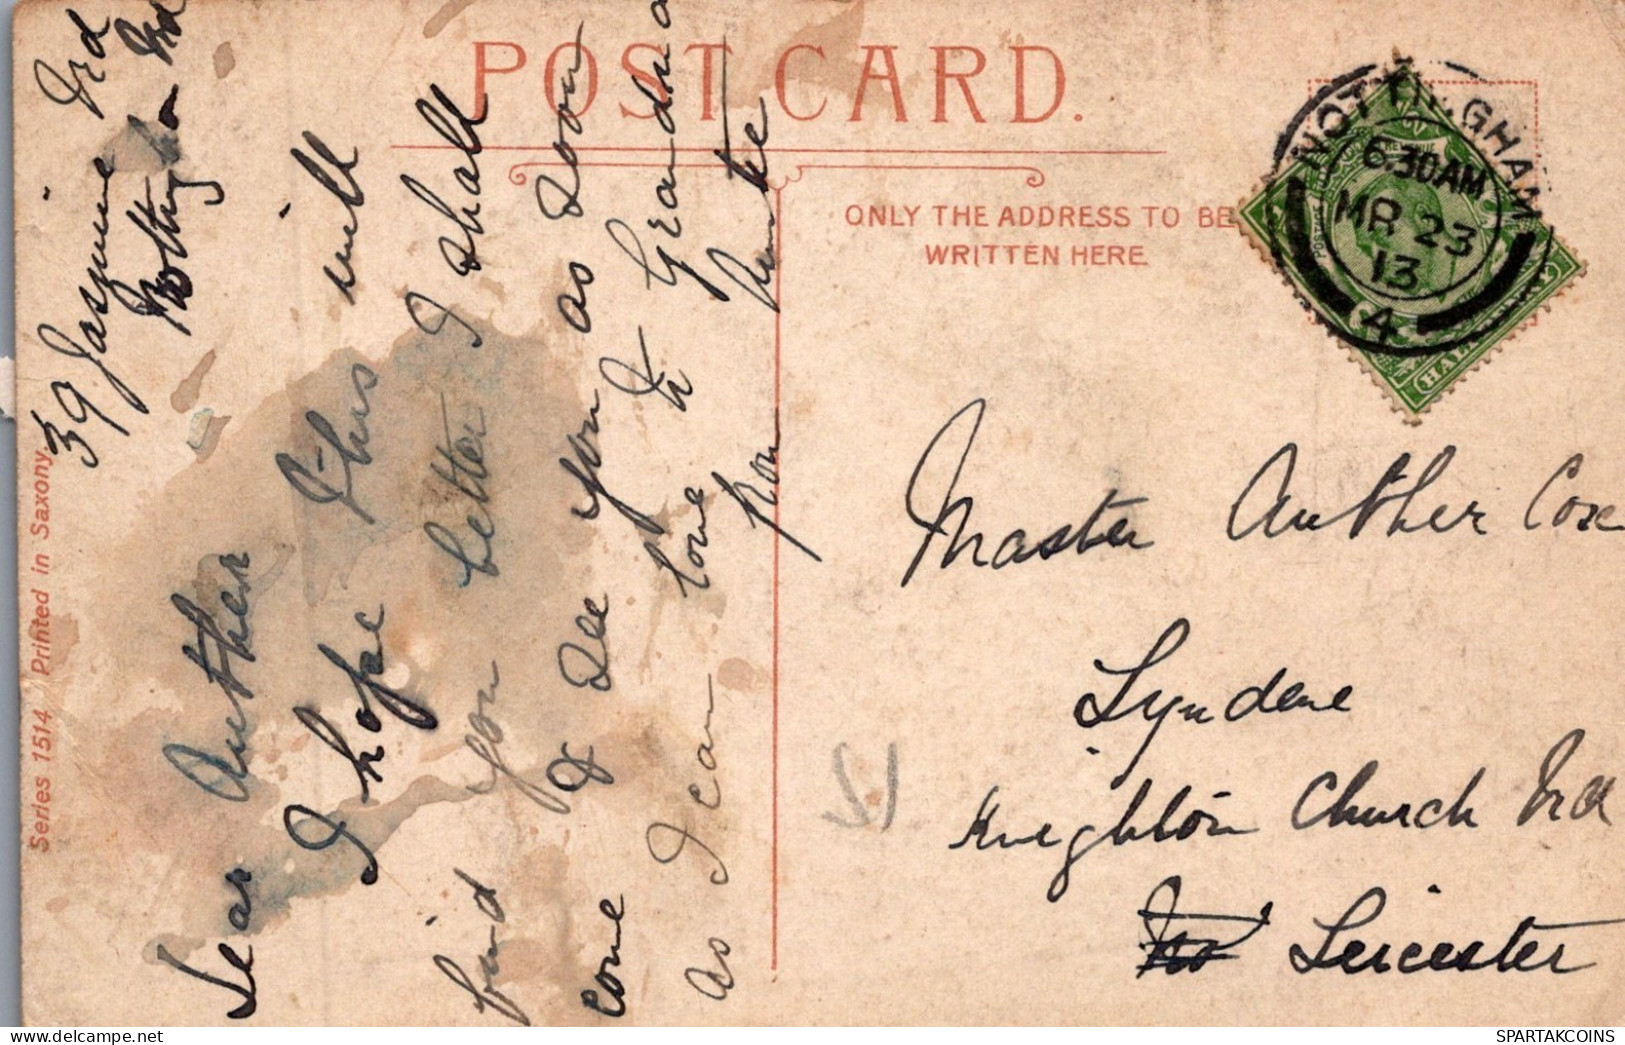 POST CARD.
ONLY THE ADDRESS TO BE
WRITTEN HERE
NOTTINGHAM
6.30AM
MR 23
13
4
Series 1514 Printed in Saxony.
39 Jasmine Ird
Nottingham Ird
Dear Auther
I hope this will
find you better I shall
come & See you as soon
as I can love to Grandma
from Auntie
Master Auther Cox
Lyndene
Knighton Church Ird
Leicester
SPARTAKCOINS